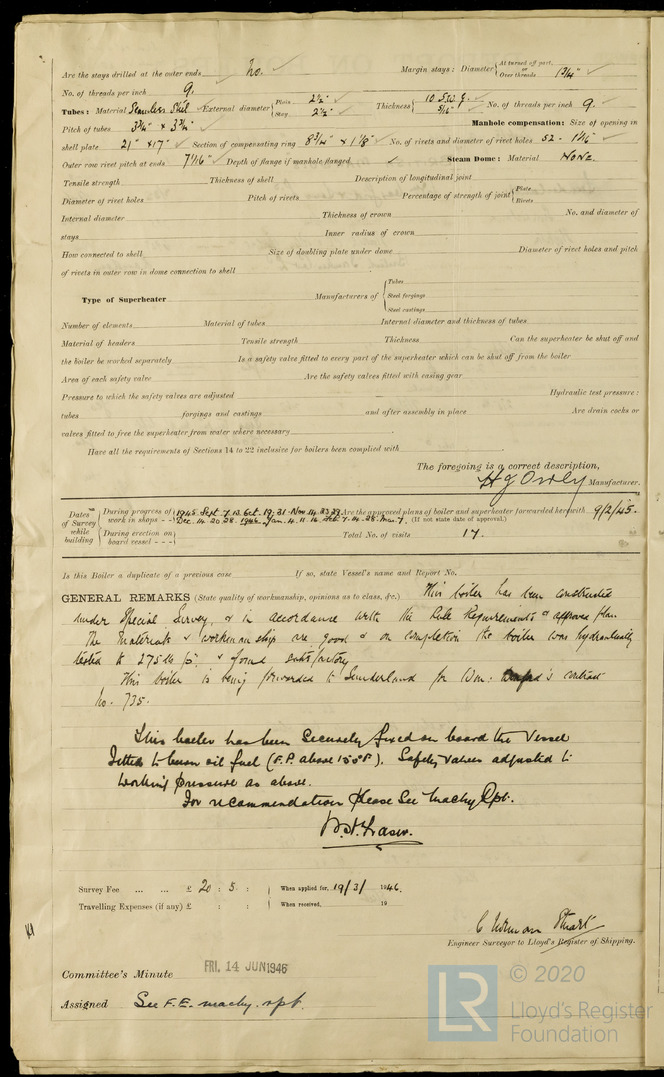 Are the stays drilled at the outer ends No. Margin stays: Diameter { At turned off part, or Over threads 1 3/4"
No. of threads per inch 9.
Tubes: Material Seamless Steel External diameter { Plain 2 1/2" Stay 2 1/2" Thickness { 10 S.W.G. 5/16" No. of threads per inch 9.
Pitch of tubes 3 3/4" x 3 3/4" Manhole compensation: Size of opening in
shell plate 21" x 17" Section of compensating ring 8 3/4" x 1 1/8" No. of rivets and diameter of rivet holes 52 - 1 1/16"
Outer row rivet pitch at ends 7 1/16" Depth of flange if manhole flanged Steam Dome: Material NONE.
Tensile strength Thickness of shell Description of longitudinal joint
Diameter of rivet holes Pitch of rivets Percentage of strength of joint { Plate Rivets
Internal diameter Thickness of crown No. and diameter of
stays Inner radius of crown
How connected to shell Size of doubling plate under dome Diameter of rivet holes and pitch
of rivets in outer row in dome connection to shell
Type of Superheater Manufacturers of { Tubes Steel forgings Steel castings
Number of elements Material of tubes Internal diameter and thickness of tubes
Material of headers Tensile strength Thickness Can the superheater be shut off and
the boiler be worked separately Is a safety valve fitted to every part of the superheater which can be shut off from the boiler
Area of each safety valve Are the safety valves fitted with easing gear
Pressure to which the safety valves are adjusted Hydraulic test pressure:
tubes forgings and castings and after assembly in place Are drain cocks or
valves fitted to free the superheater from water where necessary
Have all the requirements of Sections 14 to 22 inclusive for boilers been complied with
The foregoing is a correct description,
Manufacturer.
Dates of Survey while building { During progress of work in shops - - 1945 Sept. 7. 13. Oct. 19. 31. Nov. 14. 23. 29. Dec. 14. 20. 28. 1946. Jan. 4. 11. 16. Feb. 7. 14. 28. Mar. 7.
During erection on board vessel - - -
Are the approved plans of boiler and superheater forwarded herewith 9/2/45.
(If not state date of approval.)
Total No. of visits 17.
Is this Boiler a duplicate of a previous case If so, state Vessel's name and Report No.
GENERAL REMARKS (State quality of workmanship, opinions as to class, &c.) This boiler has been constructed
under Special Survey, & in accordance with the Rule Requirements & approved plan.
The materials & workmanship are good & on completion the boiler was hydraulically
tested to 275 lb & found satisfactory
This boiler is being forwarded to Sunderland for Wm: contract
No. 735.
This boiler has been securely fixed on board the Vessel
fitted to burn oil fuel (F.P. above 150°F). Safety Valves adjusted to
working pressure as above.
For recommendation please see machy Rpt.
Survey Fee ... ... £ 20 : 5 : When applied for, 19/3/ 1946.
Travelling Expenses (if any) £ : : When received, 19
C Norman Stuart
Engineer Surveyor to Lloyd's Register of Shipping.
Committee's Minute FRI. 14 JUN 1946
Assigned See F.E. machy. rpt.
LR © 2020
Lloyd's Register
Foundation